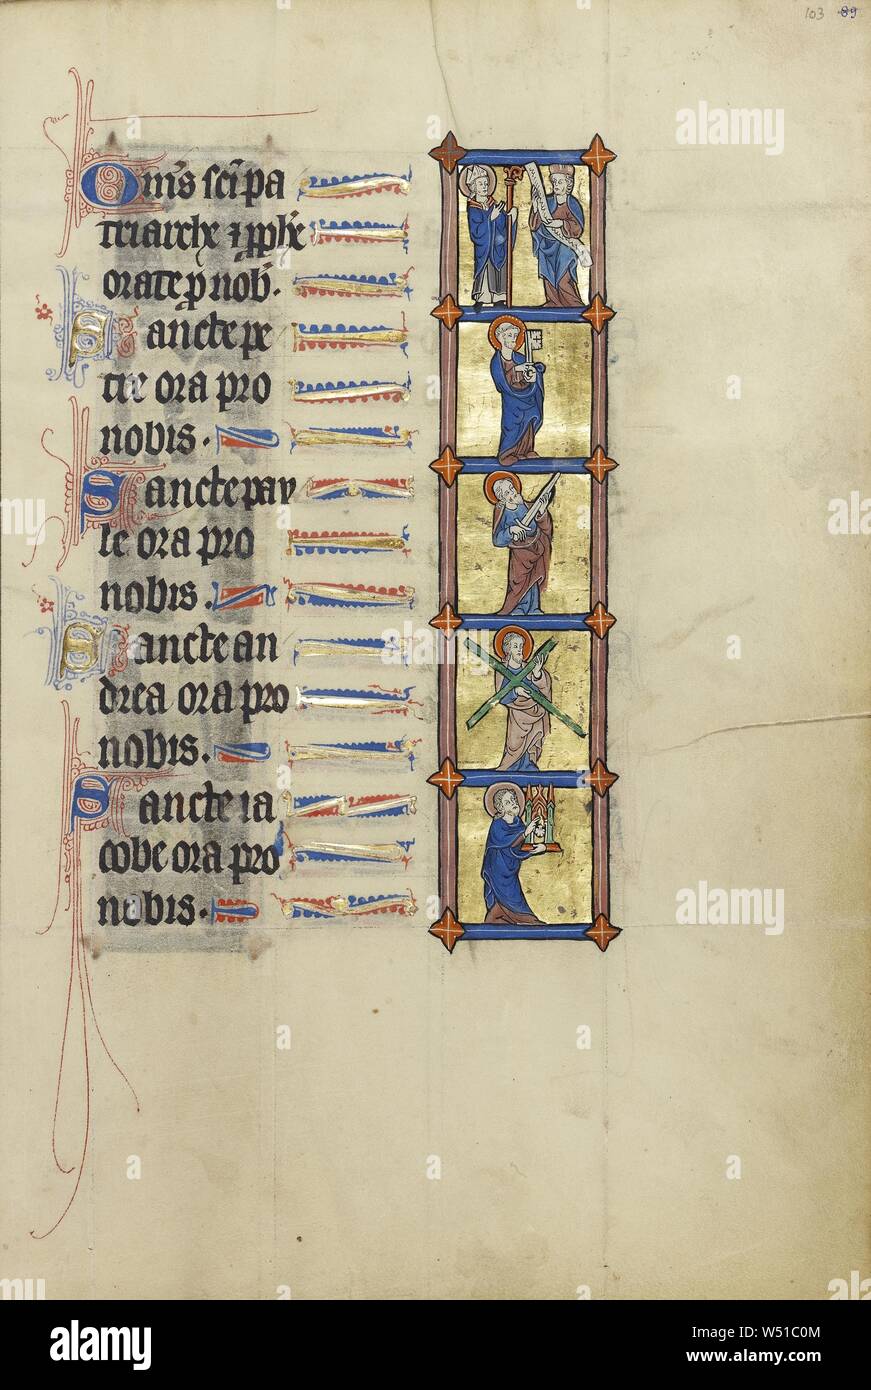 103 89
Om̄s sc̄i pa
triarche ⁊ ꝓph̄e
orate ꝓ nob̄.
Sancte pe
tre ora pro
nobis.
Sancte pau
le ora pro
nobis.
Sancte an
drea ora pro
nobis.
Sancte ia
cobe ora pro
nobis.
alamy
Image ID: W51C0M
www.alamy.com